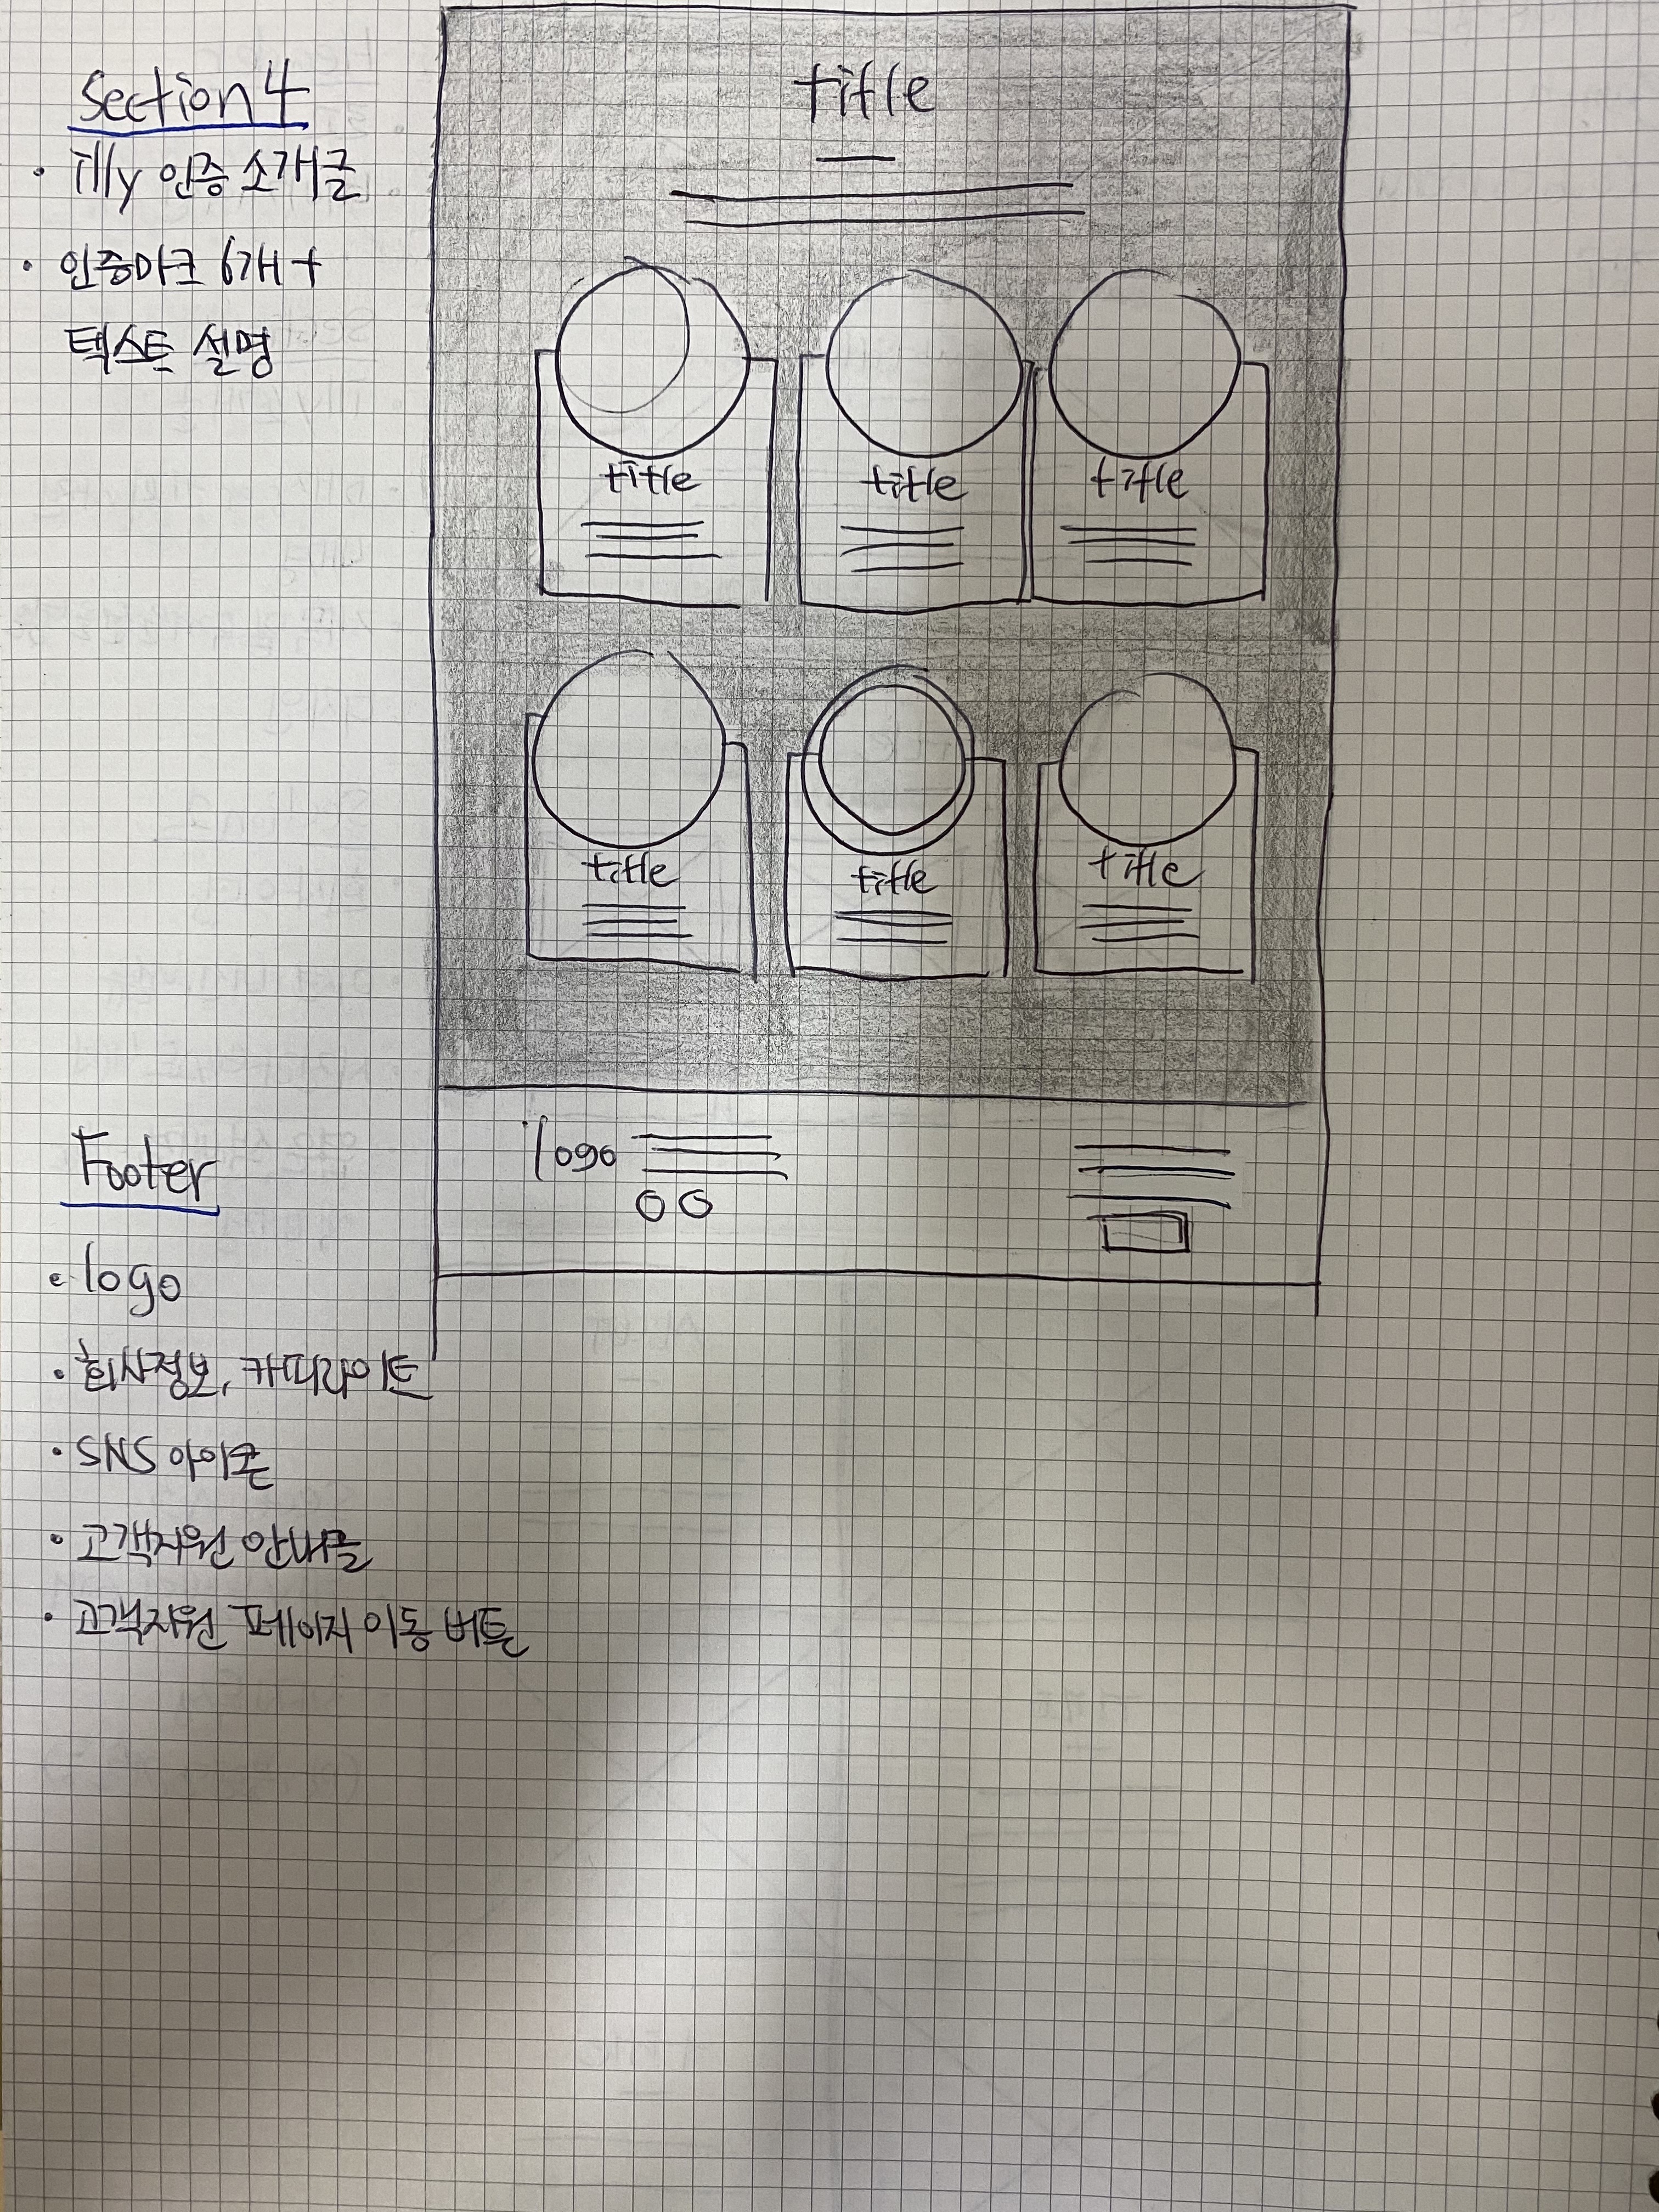 Section 4
· Tilly 인증 소개글
· 인증마크 6개 +
텍스트 설명
title
title title title
title title title
Footer
· logo
· 회사정보, 카피라이트
· SNS 아이콘
· 고객지원 안내글
· 고객지원 페이지 이동 버튼
logo